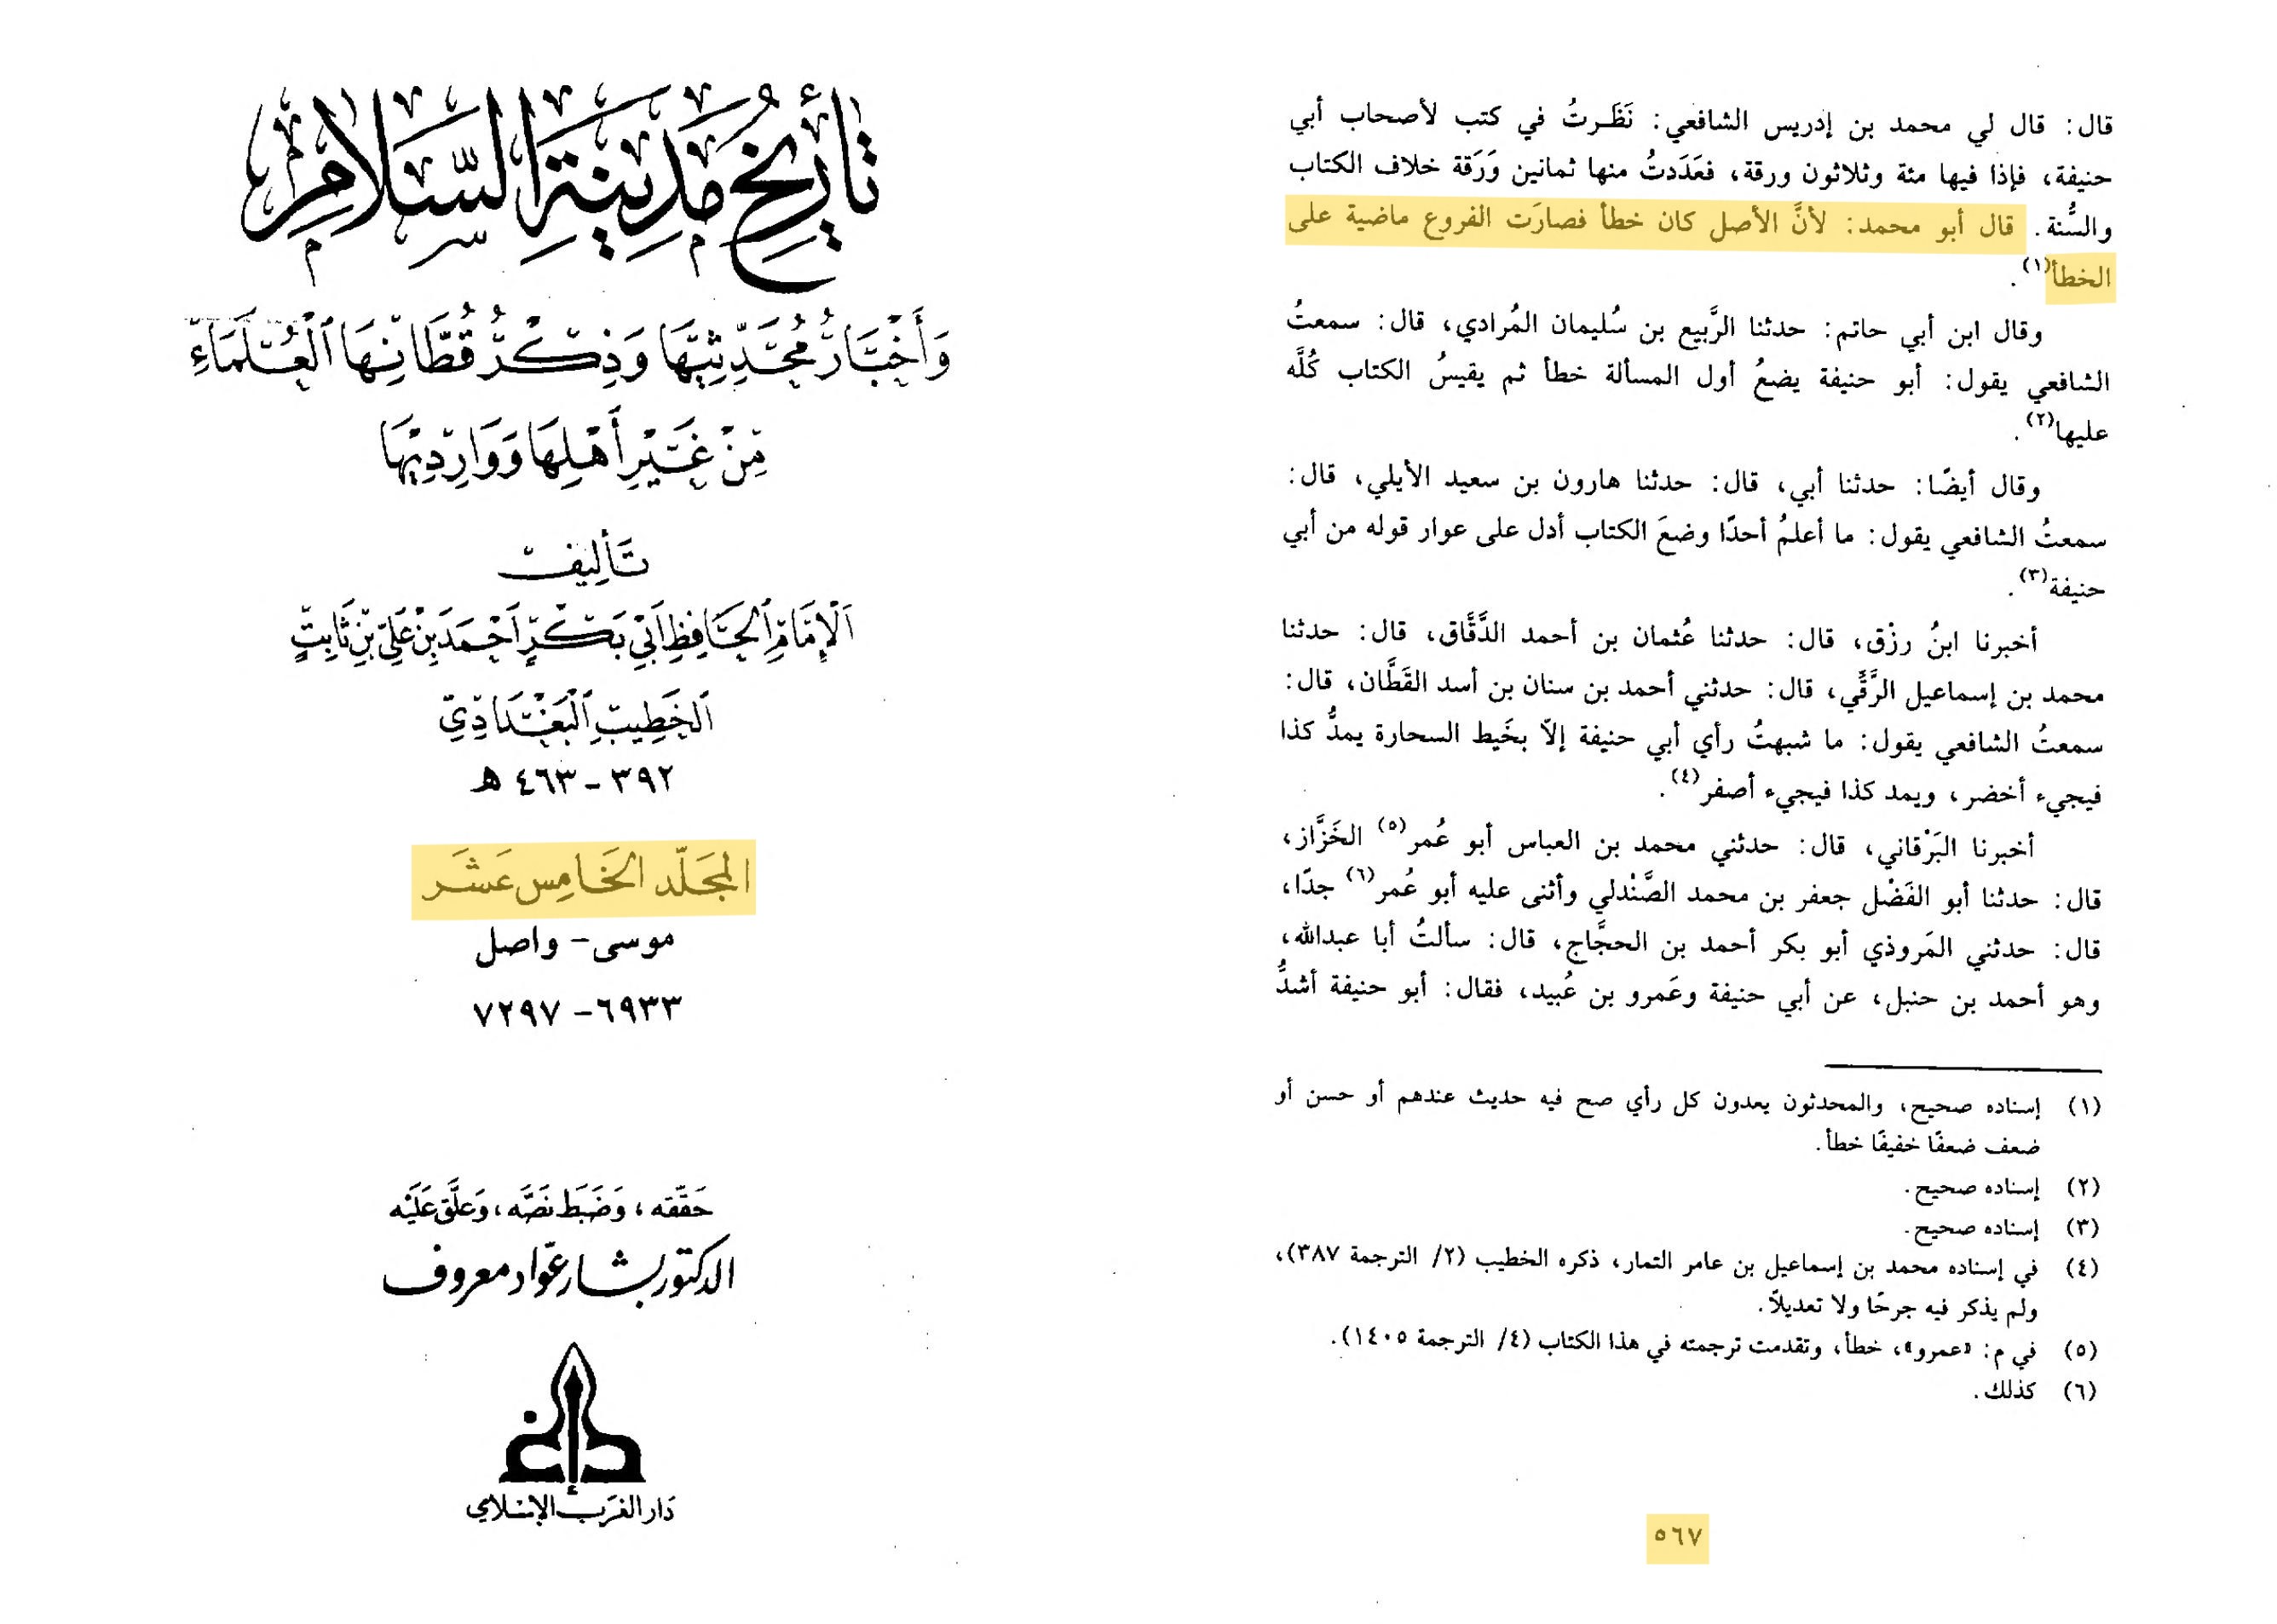 تأريخ مدينة السلام
وَأَخْبَارُ مُحَدِّثِيهَا وَذِكْرُ قُطَّانِهَا الْعُلَمَاءِ
مِنْ غَيْرِ أَهْلِهَا وَوَارِدِيهَا
تَأليف
الإمَامِ الحَافِظِ أَبِي بَكْرٍ أَحْمَدَ بْنِ عَلِيِّ بْنِ ثَابِتٍ
الخَطِيبِ البَغْدَادِيِّ
٣٩٢ - ٤٦٣ هـ
المجَلّد الخَامِس عَشَر
موسى - واصل
٦٩٣٣ - ٧٢٩٧
حَقّقه، وَضَبَط نَصَّه، وَعَلَّق عَلَيْه
الدكتور بشار عوّاد معروف
دَار الغَرب الإسْلامي
قال: قال لي محمد بن إدريس الشافعي: نَظَرتُ في كتب لأصحاب أبي
حنيفة، فإذا فيها مئة وثلاثون ورقة، فعَدَدتُ منها ثمانين وَرَقة خلاف الكتاب
والسُّنة. قال أبو محمد: لأنَّ الأصل كان خطأ فصارَت الفروع ماضية على
الخطأ(١).
وقال ابن أبي حاتم: حدثنا الرَّبيع بن سُليمان المُرادي، قال: سمعتُ
الشافعي يقول: أبو حنيفة يضعُ أول المسألة خطأ ثم يقيسُ الكتاب كُلَّه
عليها(٢).
وقال أيضًا: حدثنا أبي، قال: حدثنا هارون بن سعيد الأيلي، قال:
سمعتُ الشافعي يقول: ما أعلمُ أحدًا وضعَ الكتاب أدل على عوار قوله من أبي
حنيفة(٣).
أخبرنا ابنُ رزْق، قال: حدثنا عُثمان بن أحمد الدَّقَّاق، قال: حدثنا
محمد بن إسماعيل الرَّقِّي، قال: حدثني أحمد بن سنان بن أسد القَطَّان، قال:
سمعتُ الشافعي يقول: ما شبهتُ رأي أبي حنيفة إلاّ بخَيط السحارة يمدُّ كذا
فيجيء أخضر، ويمد كذا فيجيء أصفر(٤).
أخبرنا البَرْقاني، قال: حدثني محمد بن العباس أبو عُمر(٥) الخَزَّاز،
قال: حدثنا أبو الفَضْل جعفر بن محمد الصَّنْدلي وأثنى عليه أبو عُمر(٦) جدًا،
قال: حدثني المَروذي أبو بكر أحمد بن الحجَّاج، قال: سألتُ أبا عبدالله،
وهو أحمد بن حنبل، عن أبي حنيفة وعَمرو بن عُبيد، فقال: أبو حنيفة أشدُّ
(١) إسناده صحيح، والمحدثون يعدون كل رأي صح فيه حديث عندهم أو حسن أو
ضعف ضعفًا خفيفًا خطأ.
(٢) إسناده صحيح.
(٣) إسناده صحيح.
(٤) في إسناده محمد بن إسماعيل بن عامر التمار، ذكره الخطيب (٢/ الترجمة ٣٨٧)،
ولم يذكر فيه جرحًا ولا تعديلاً.
(٥) في م: «عمرو»، خطأ، وتقدمت ترجمته في هذا الكتاب (٤/ الترجمة ١٤٠٥).
(٦) كذلك.
٥٦٧